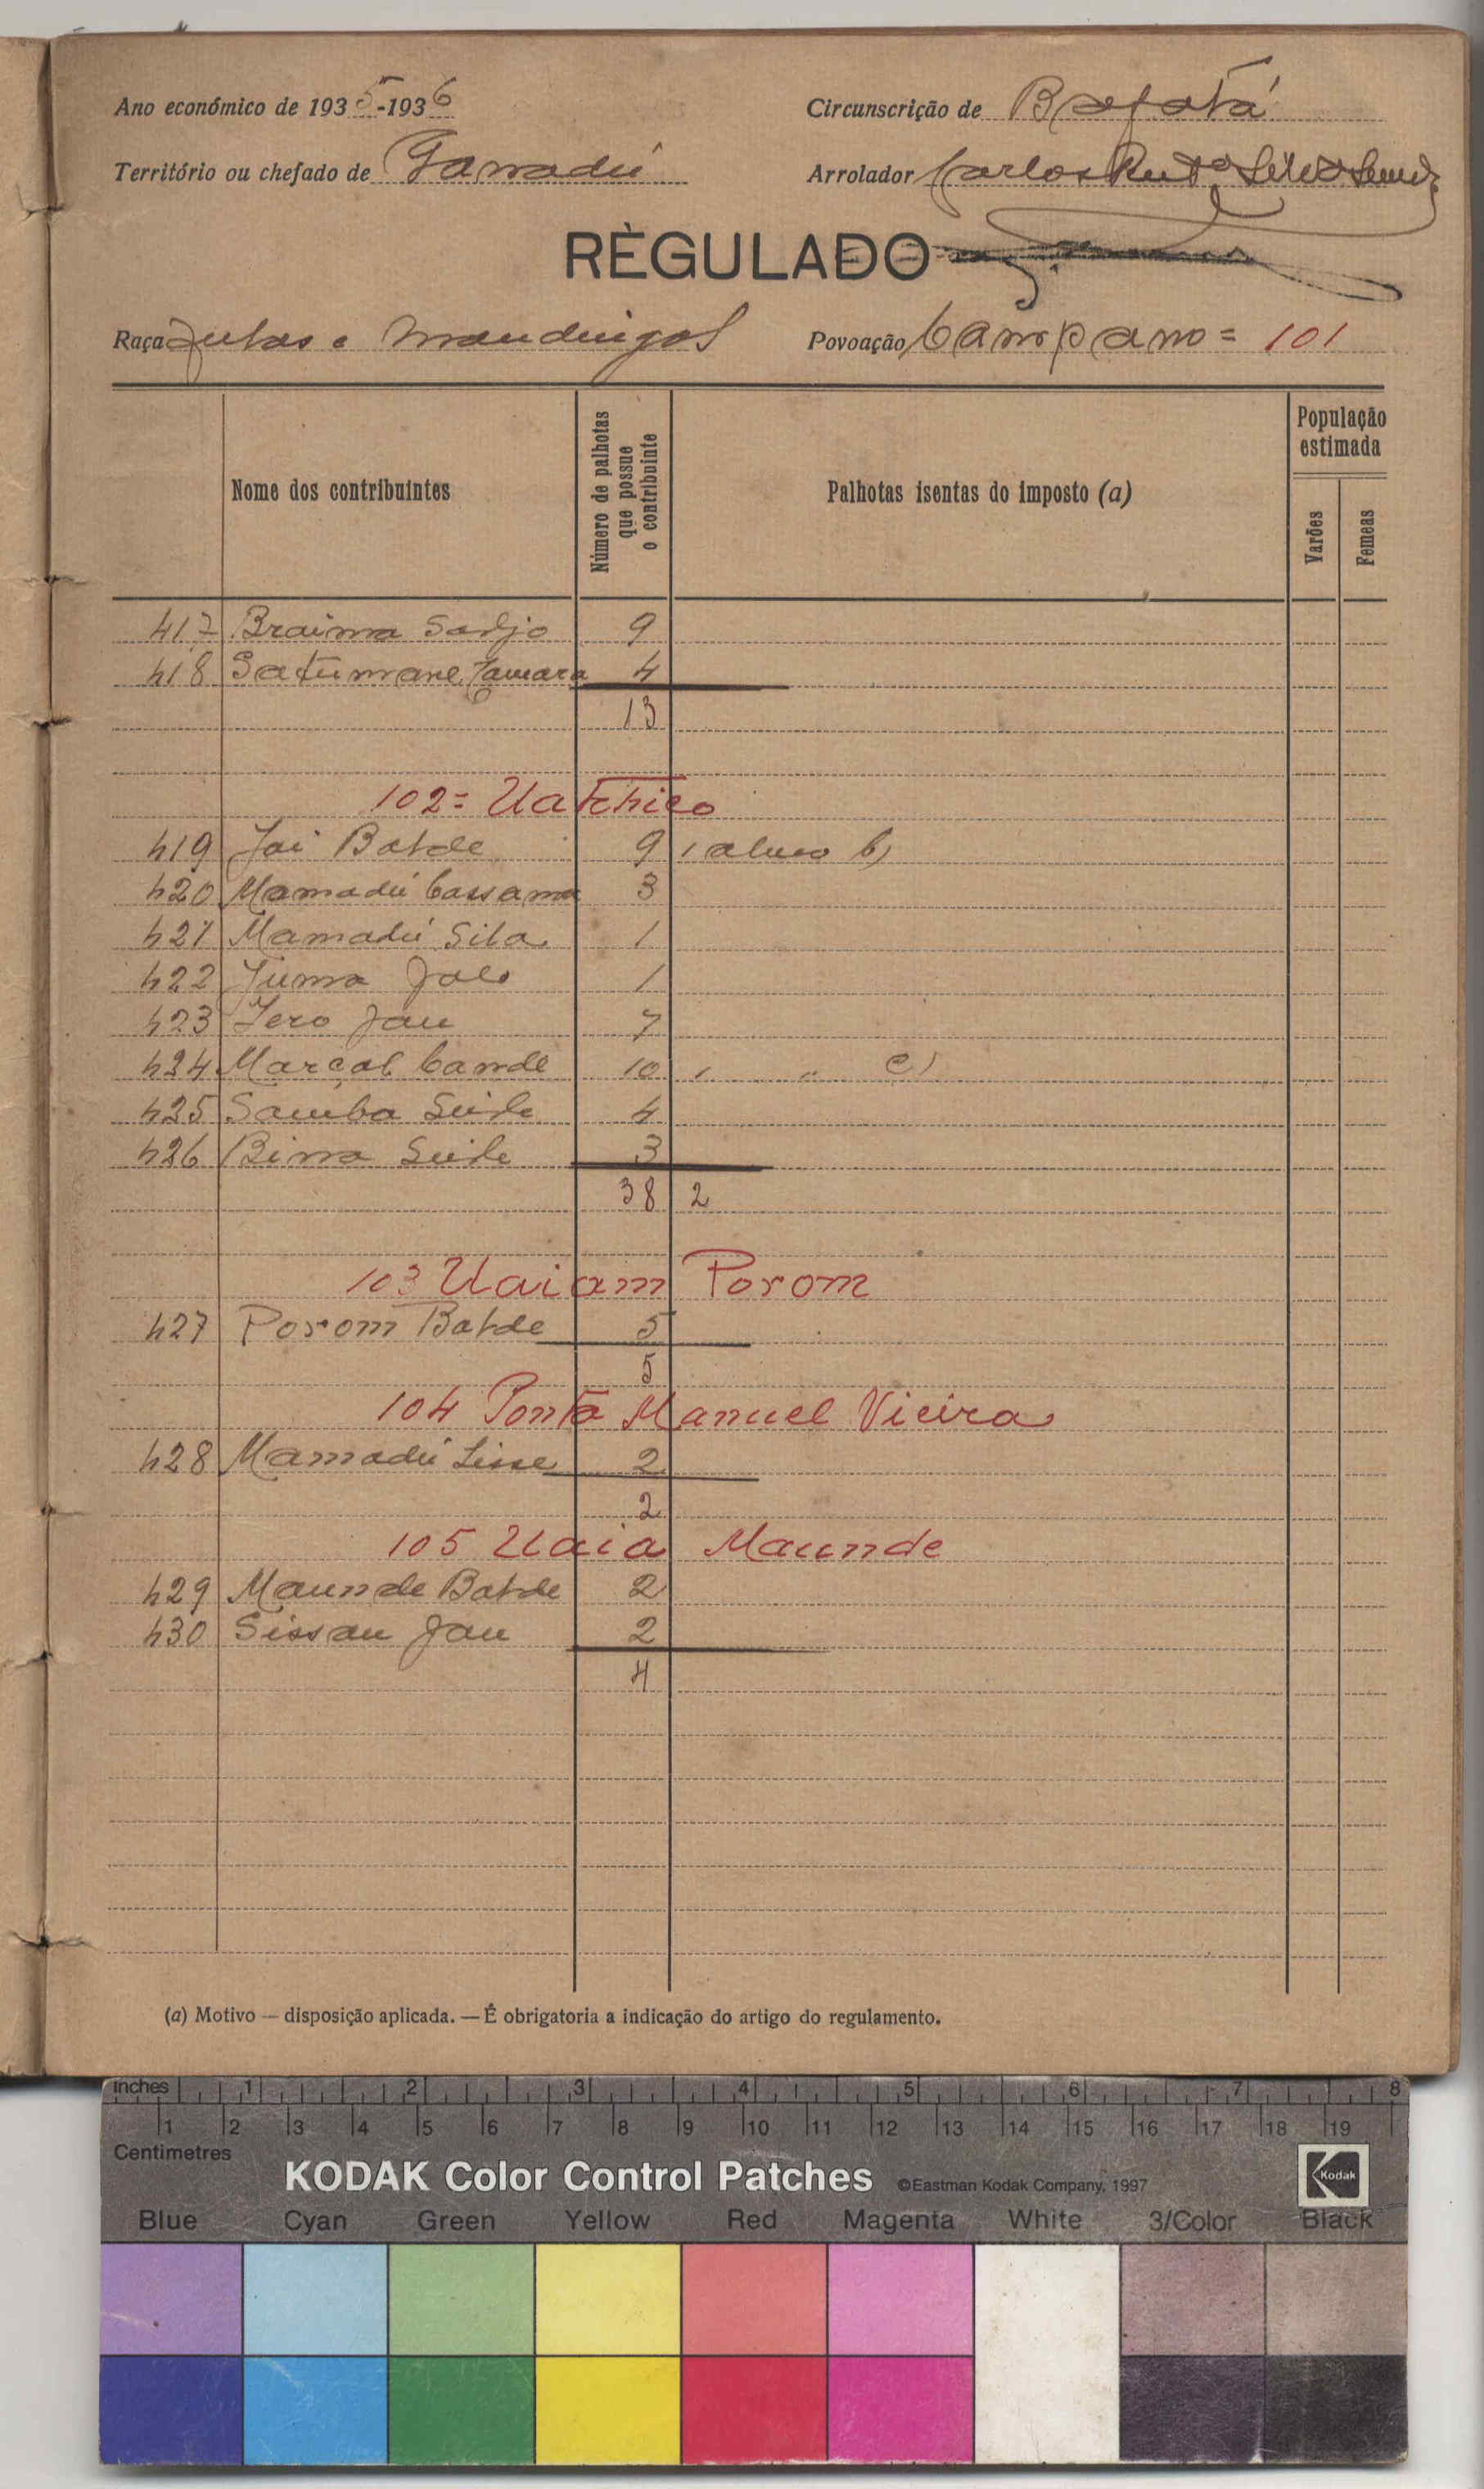 Ano económico de 1935-1936
Circunscrição de Bafatá
Território ou chefado de Ganadú
Arrolador Carlos
RÈGULADO
Raça Fulas e mandingas
Povoação Campano = 101
Nome dos contribuintes
Número de palhotas que possue o contribuinte
Palhotas isentas do imposto (a)
População estimada
Varões
Femeas
417 Braima Sadjo 9
418 Satumane Camara 4
13
102 = Uatchico
419 Jai Balde 9 1 alinea b)
420 Mamadú Cassama 3
421 Mamadú Sila 1
422 Tuma Jalo 1
423 Jau 7
424 Marçal Cande 10 1 " c)
425 Samba Seide 4
426 Bima Seide 3
38 2
103 Uaiam Porom
427 Porom Balde 5
5
104 Ponta Manuel Vieira
428 Mamadú Sisse 2
2
105 Uaia Maunde
429 Maunde Balde 2
430 Sissau Jau 2
4
(a) Motivo — disposição aplicada. — É obrigatoria a indicação do artigo do regulamento.
inches 1 2 3 4 5 6 7 8
1 2 3 4 5 6 7 8 9 10 11 12 13 14 15 16 17 18 19
Centimetres
KODAK Color Control Patches ©Eastman Kodak Company, 1997 Kodak
Blue Cyan Green Yellow Red Magenta White 3/Color Black